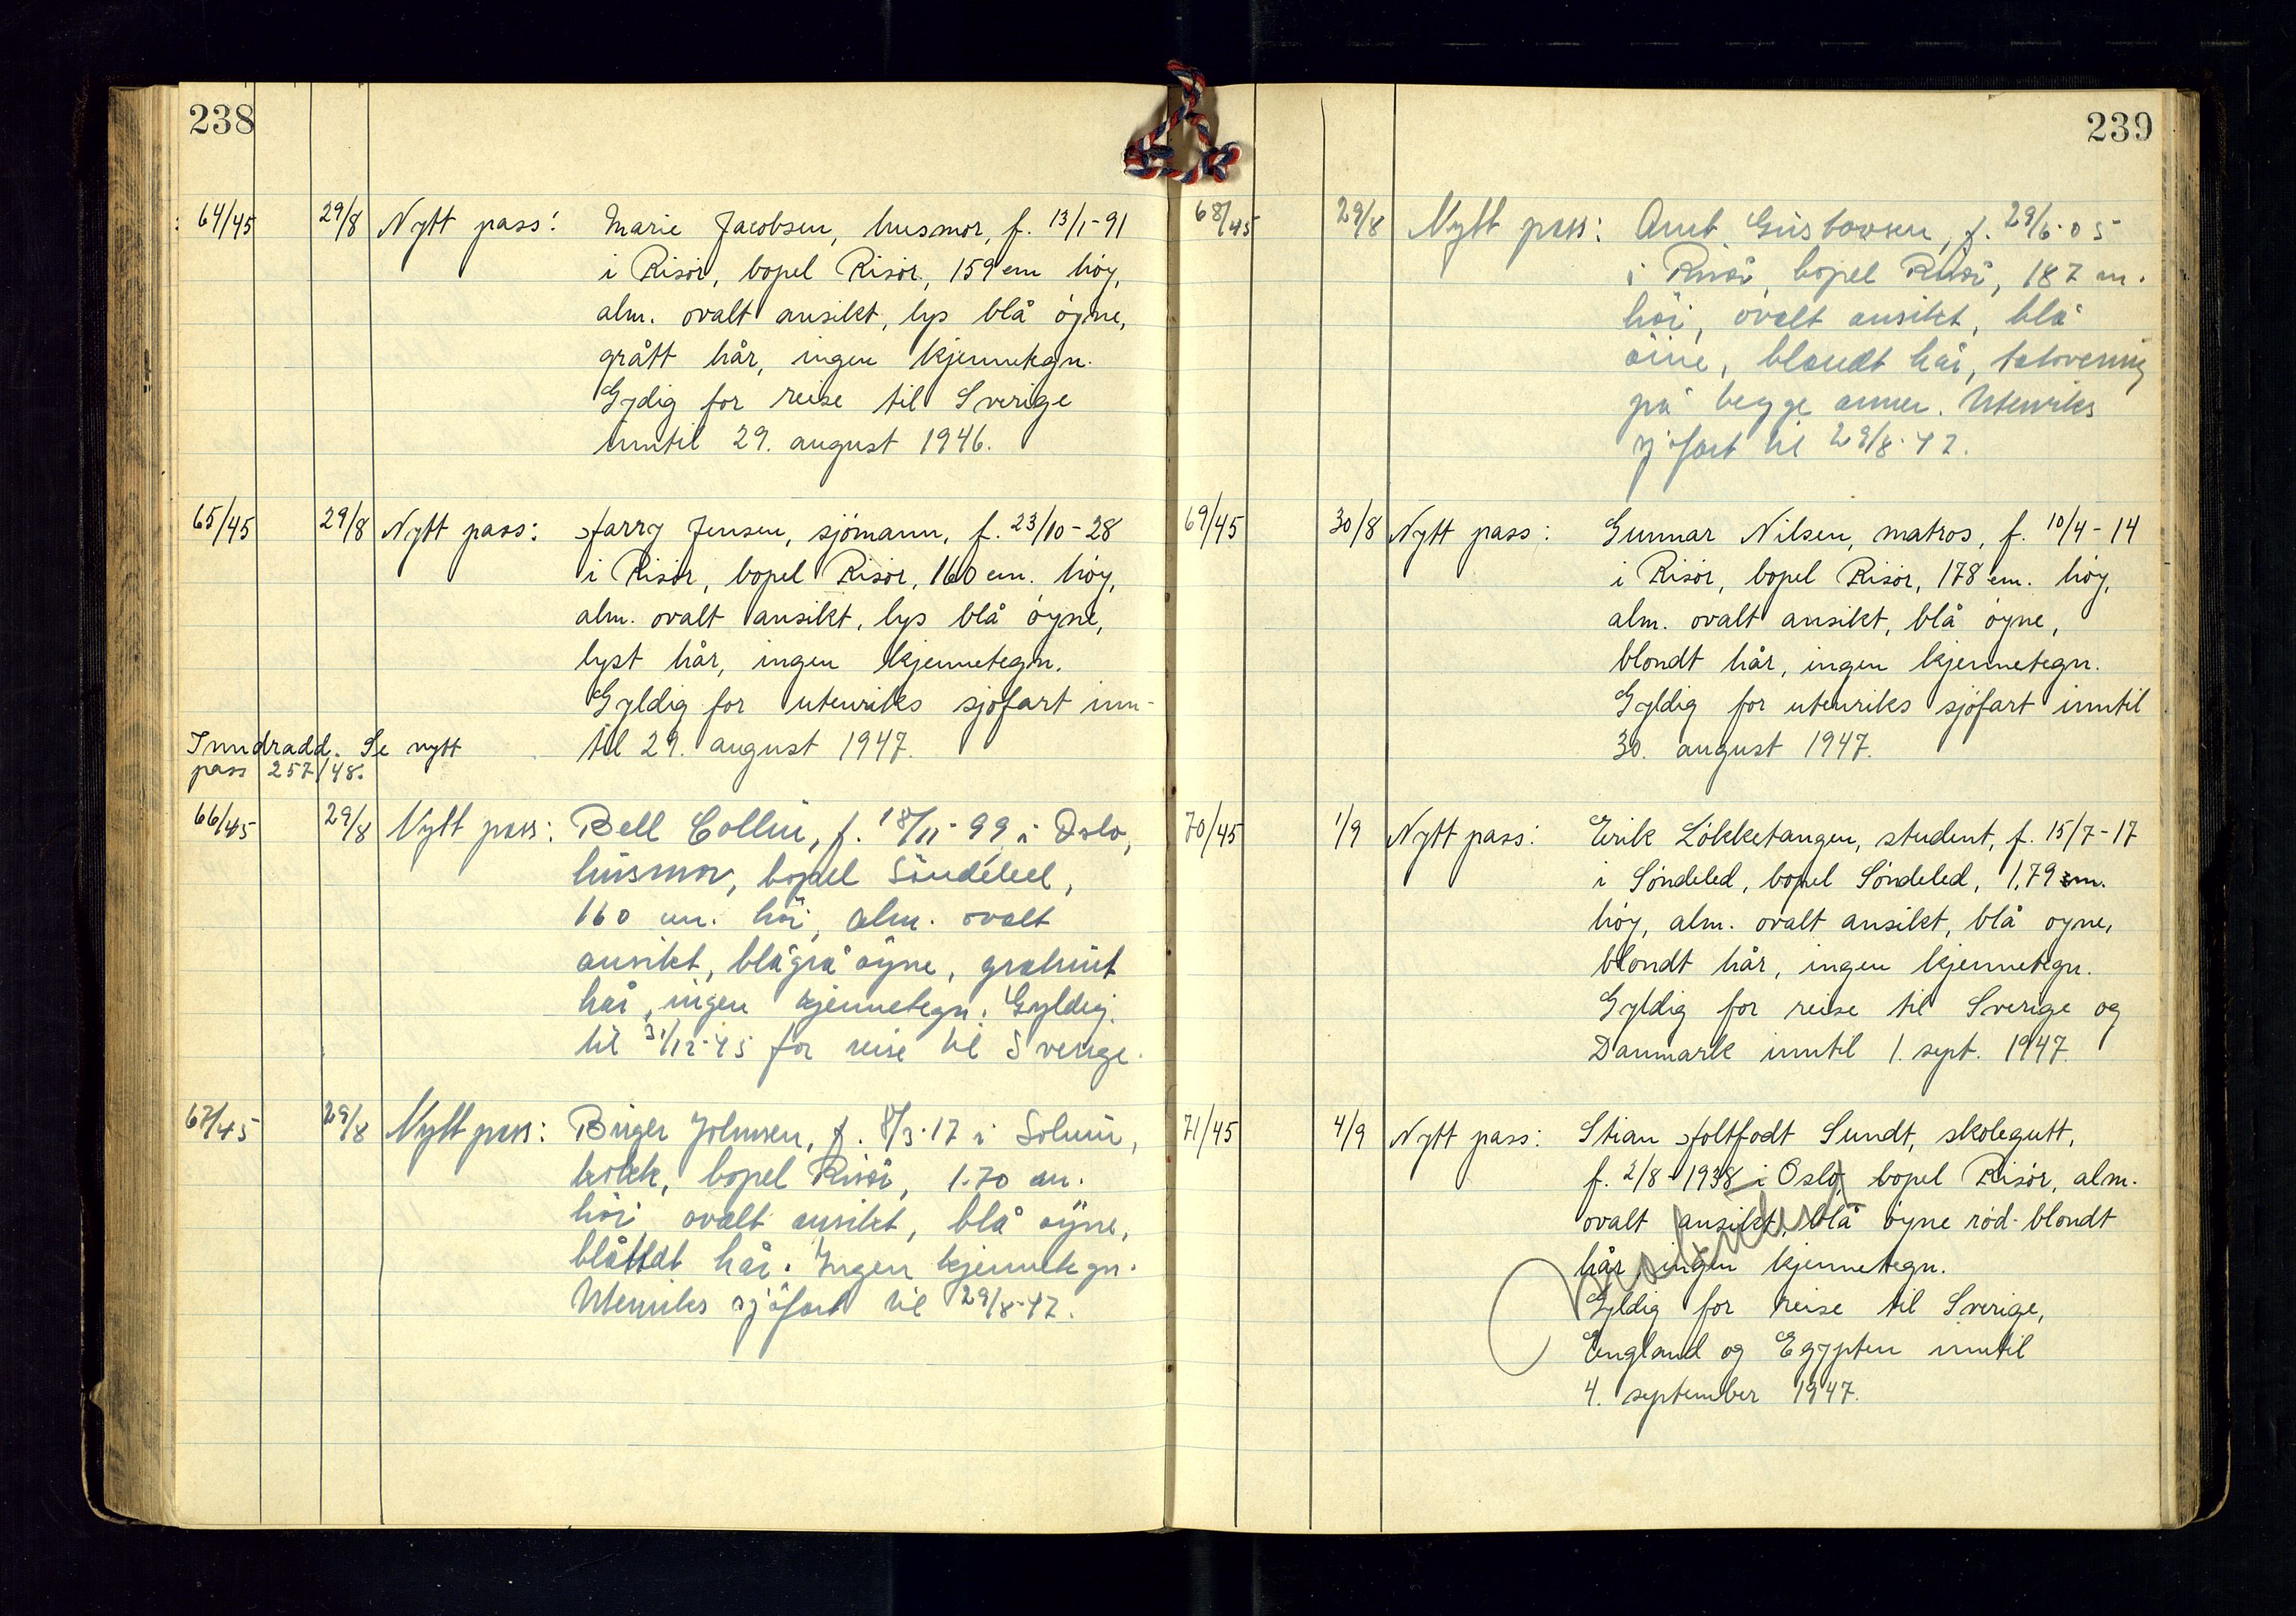 238
64/45 29/8 Nytt pass: Marie Jacobsen, husmor, f. 13/1-91
i Risör, bopel Risör, 159 cm höy,
alm. ovalt ansikt, lys blå öyne,
grått hår, ingen kjennetegn.
Gydig for reise til Sverige
inntil 29. august 1946.
65/45 29/8 Nytt pass: Harry Jensen, sjömann, f. 23/10-28
i Risör, bopel Risör, 160 cm. höy,
alm. ovalt ansikt, lys blå öyne,
lyst hår, ingen kjennetegn.
Gyldig for utenriks sjöfart inn-
til 29. august 1947.
Inndradd. Se nytt
pass 257/48.
66/45 29/8 Nytt pass: Bell Collin, f. 18/11-99 i Oslo,
husmor, bopel Söndeled,
160 cm. höi, alm. ovalt
ansikt, blågrå öyne, gråbrunt
hår, ingen kjennetegn. Gyldig
til 31/12-45 for reise til Sverige.
67/45 29/8 Nytt pass: Birger Johnsen, f. 8/3-17 i Solum,
kokk, bopel Risör, 1.70 cm.
höi ovalt ansikt, blå öyne,
hår. Ingen kjennetegn.
Utenriks sjöfart til 29/8-47.
239
68/45 29/8 Nytt pass: Arnt Gustavsen, f. 29/6-05
i Risör, bopel Risör, 187 cm.
höi, ovalt ansikt, blå
öine, blondt hår, tatovering
på begge armer. Utenriks
sjöfart til 29/8-47.
69/45 30/8 Nytt pass: Gunnar Nilsen, matros, f. 10/4-14
i Risör, bopel Risör, 178 cm. höy,
alm. ovalt ansikt, blå öyne,
blondt hår, ingen kjennetegn.
Gyldig for utenriks sjöfart inntil
30. august 1947.
70/45 1/9 Nytt pass: Eirik Lökketangen, student, f. 15/7-17
i Söndeled, bopel Söndeled, 1,79 cm.
höy, alm. ovalt ansikt, blå oyne,
blondt hår, ingen kjennetegn.
Gyldig for reise til Sverige og
Danmark inntil 1. sept. 1947.
71/45 4/9 Nytt pass: Stian Holtfodt Sundt, skolegutt,
f. 2/8-1938 i Oslo, bopel Risör, alm.
ovalt ansikt, blå öyne röd-blondt
hår, ingen kjennetegn.
Gyldig for reise til Sverige,
England og Egypten inntil
4. september 1947.